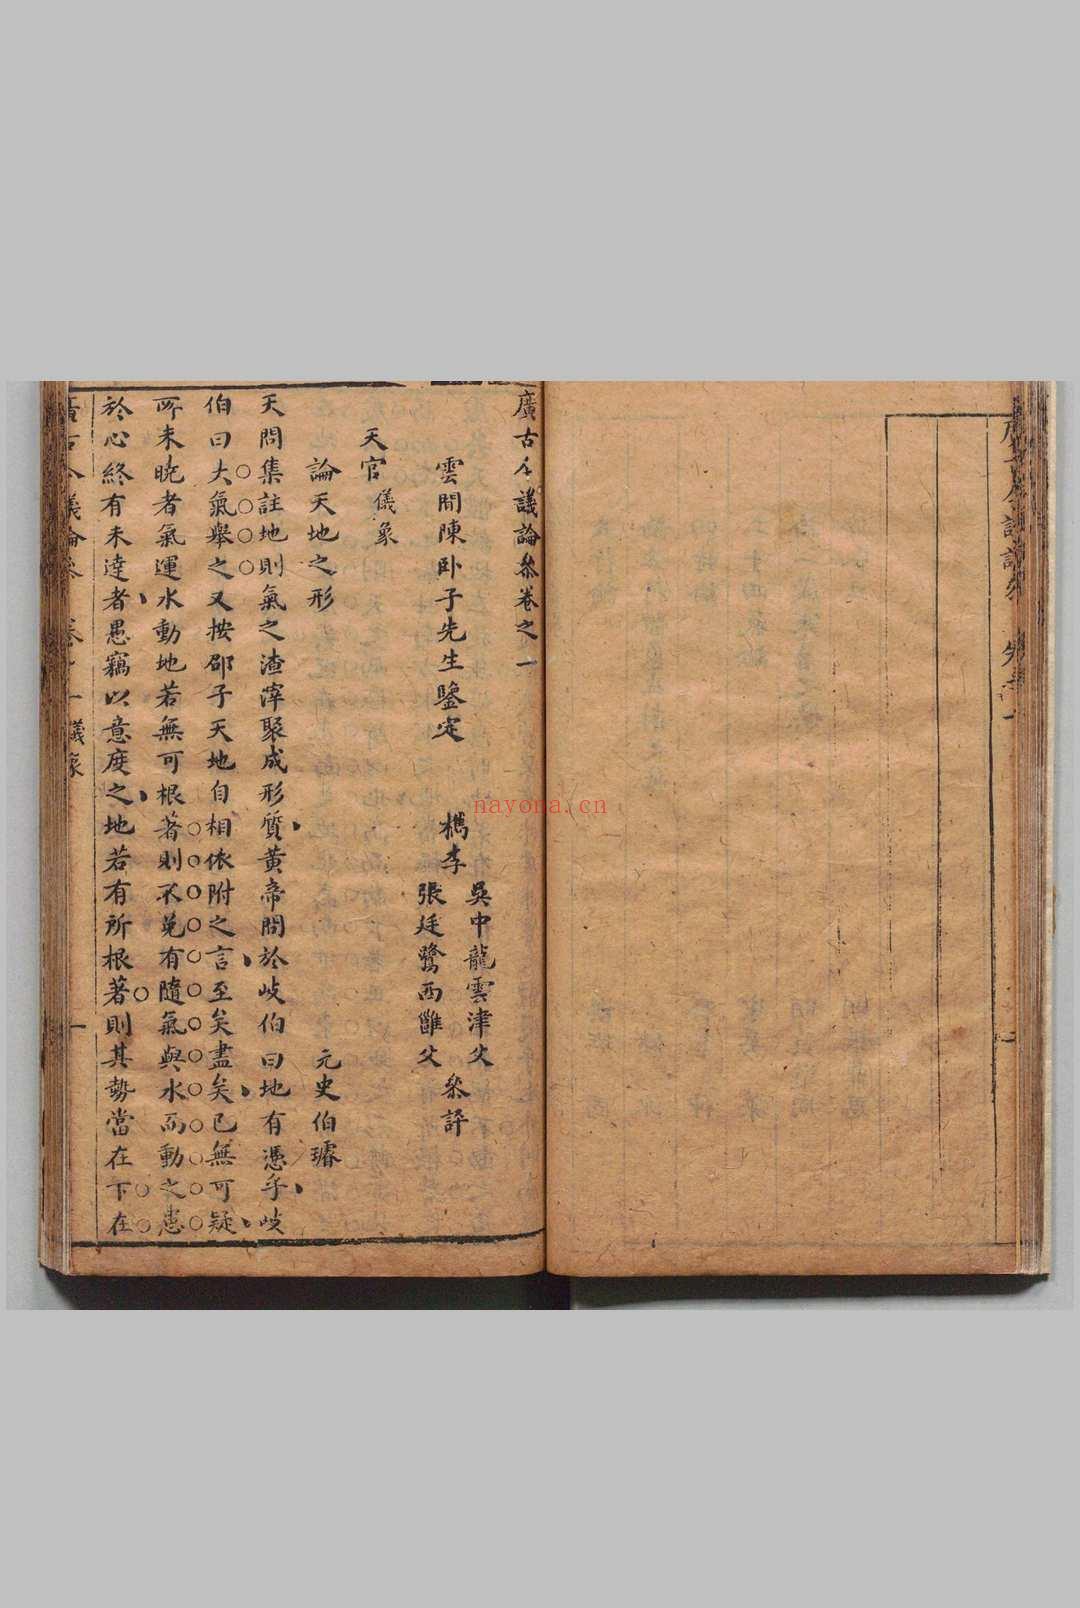 廣古今議論參卷之一
雲間陳卧子先生鑒定
檇李
吳中龍雲津父
張廷鷺西雝父
叅評
天官
儀象
論天地之形
元史伯璿
天問集註地則氣之渣滓聚成形質黄帝問於岐伯曰地有憑乎岐
伯曰大氣舉之又按邵子天地自相依附之言至矣盡矣已無可疑
所未曉者氣運水動地若無可根著則不免有隨氣與水而動之患
於心終有未達者愚竊以意度之地若有所根著則其勢當在下在
廣古今議論叅
卷之一儀象
一
nayona.cn